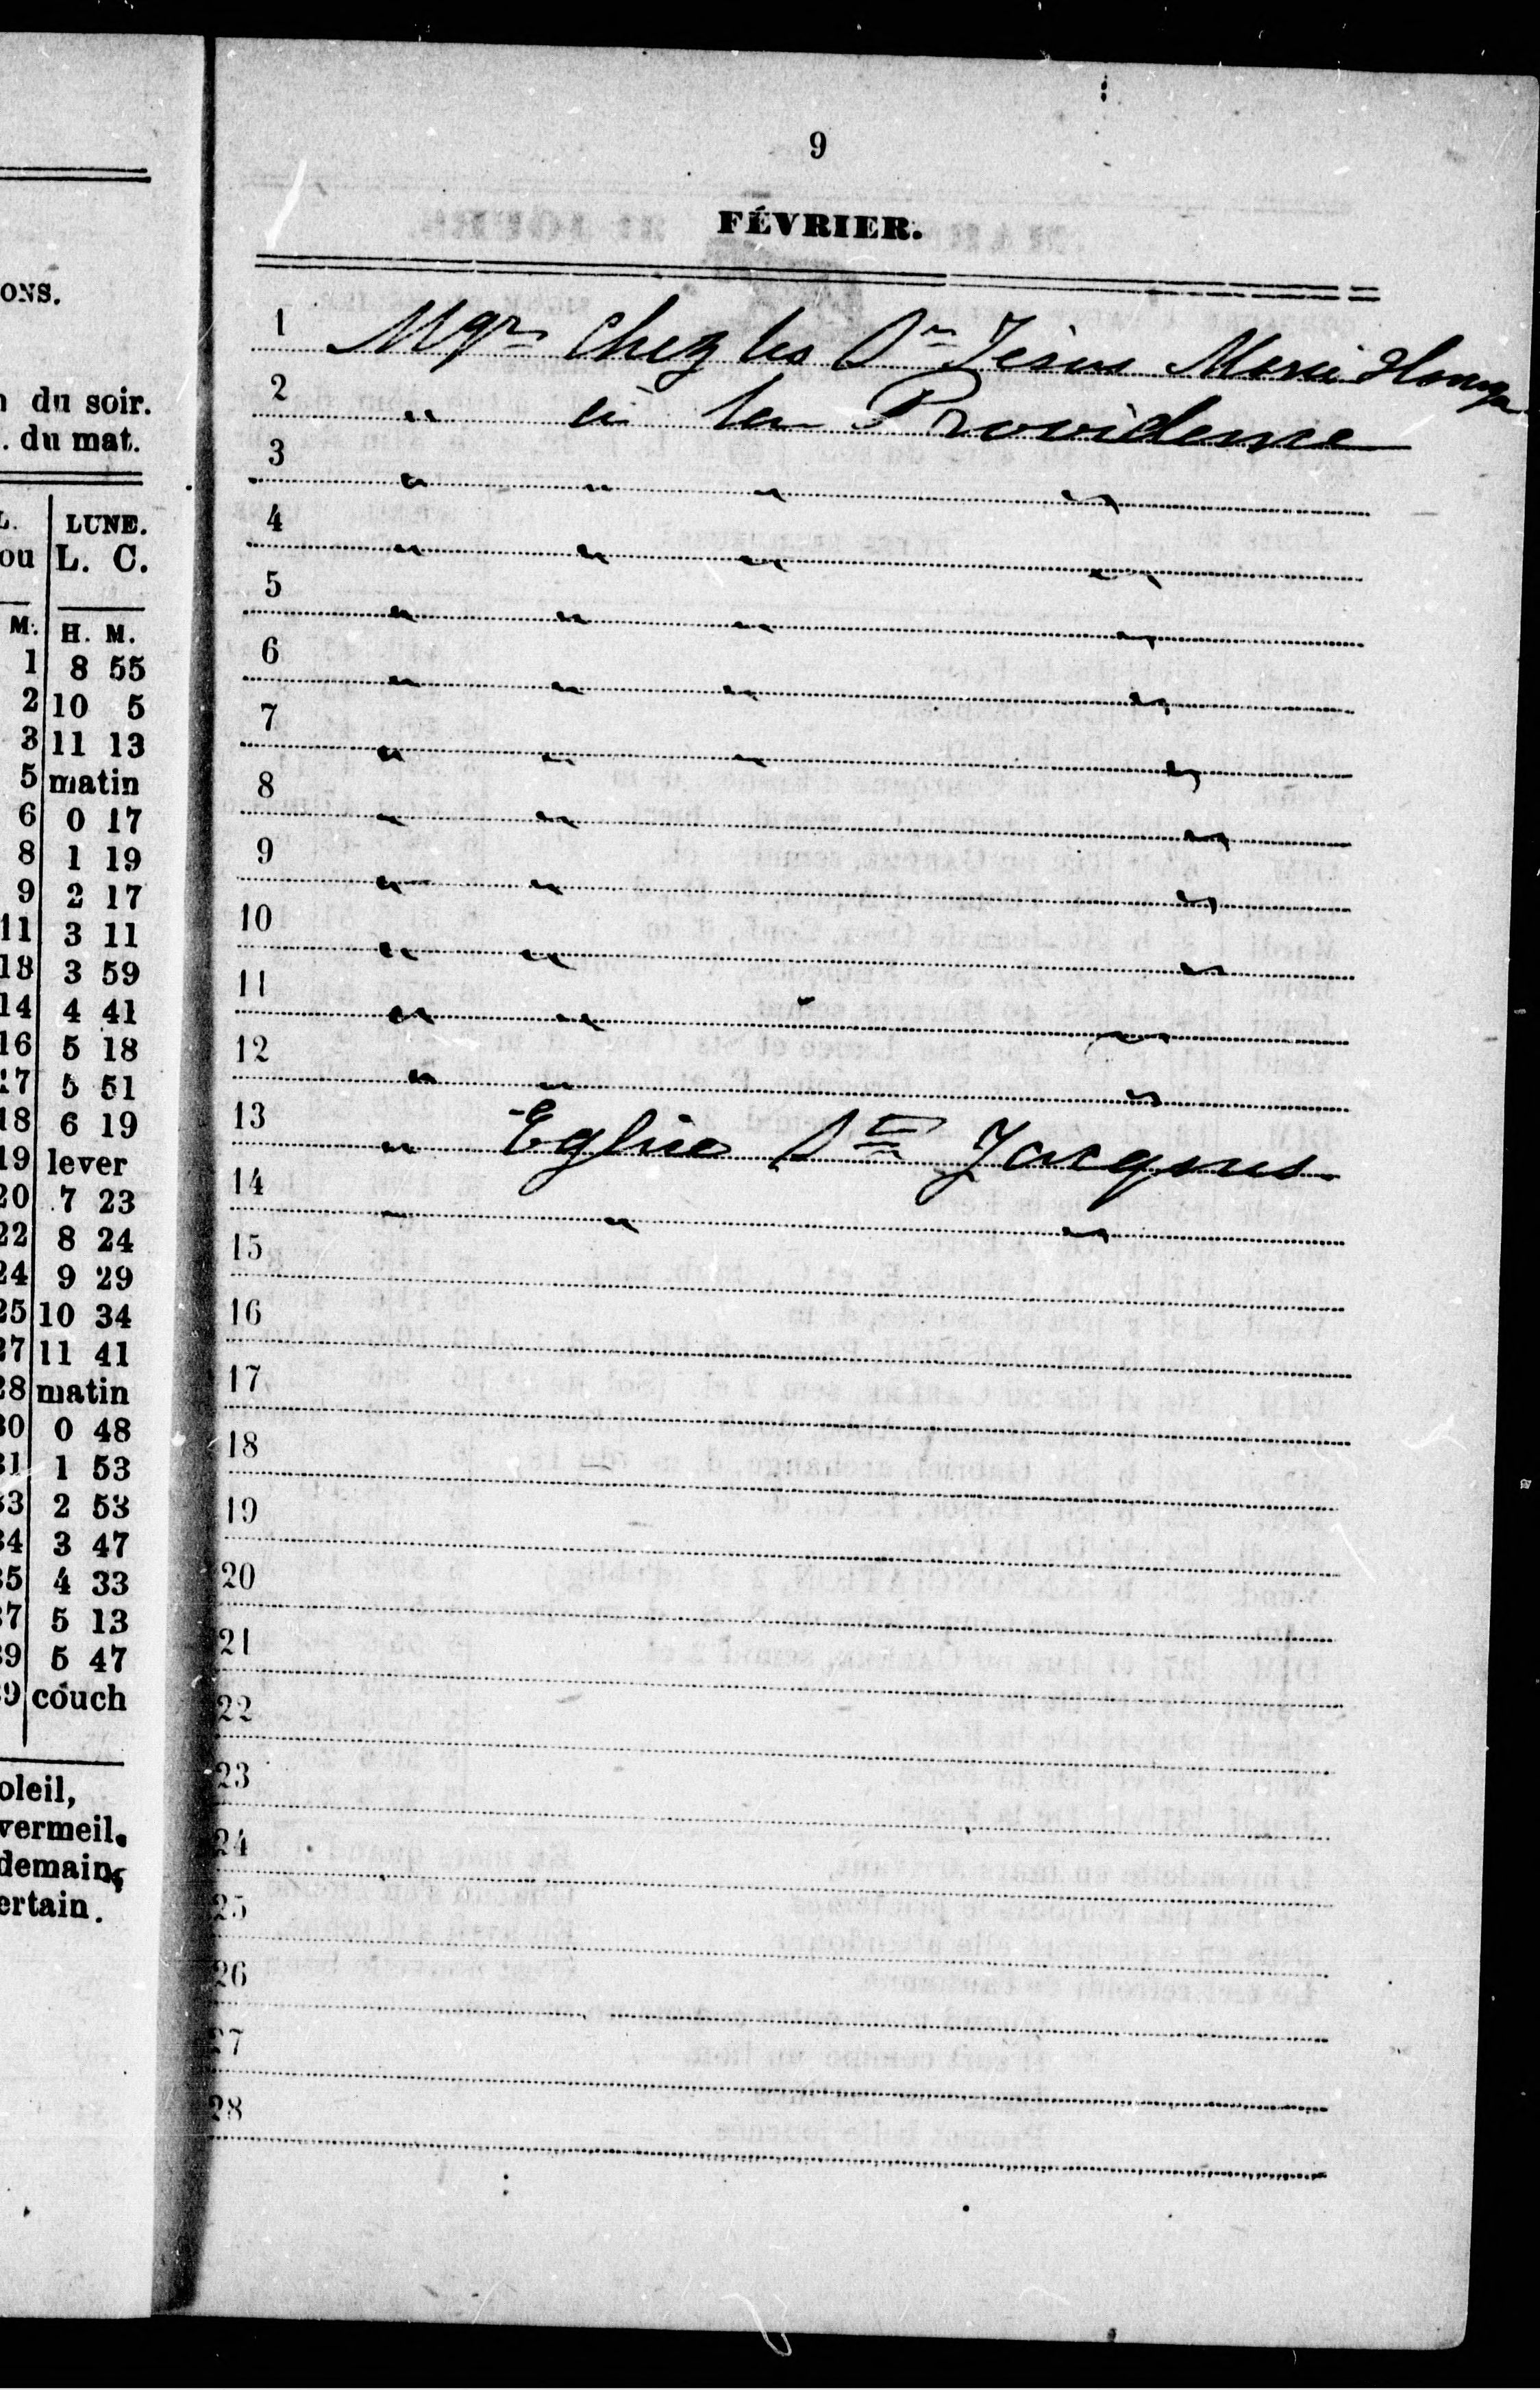 ONS.
du soir.
. du mat.
L. LUNE.
ou L. C.
M. H. M.
1 8 55
2 10 5
3 11 13
5 matin
6 0 17
8 1 19
9 2 17
11 3 11
13 3 59
14 4 41
16 5 18
17 5 51
18 6 19
19 lever
20 7 23
22 8 24
24 9 29
25 10 34
27 11 41
28 matin
30 0 48
31 1 53
33 2 53
34 3 47
35 4 33
37 5 13
39 5 47
9 couch
oleil,
vermeil.
demain,
ertain.
9
FÉVRIER.
1 Mgr chez les Srs Jésus Marie
2 " à la Providence
3 " " " "
4 " " " "
5 " " " "
6 " " " "
7 " " " "
8 " " "
9 " " "
10 " " "
11 " " "
12 " " "
13 " Eglise St Jacques
14 " " "
15
16
17
18
19
20
21
22
23
24
25
26
27
28